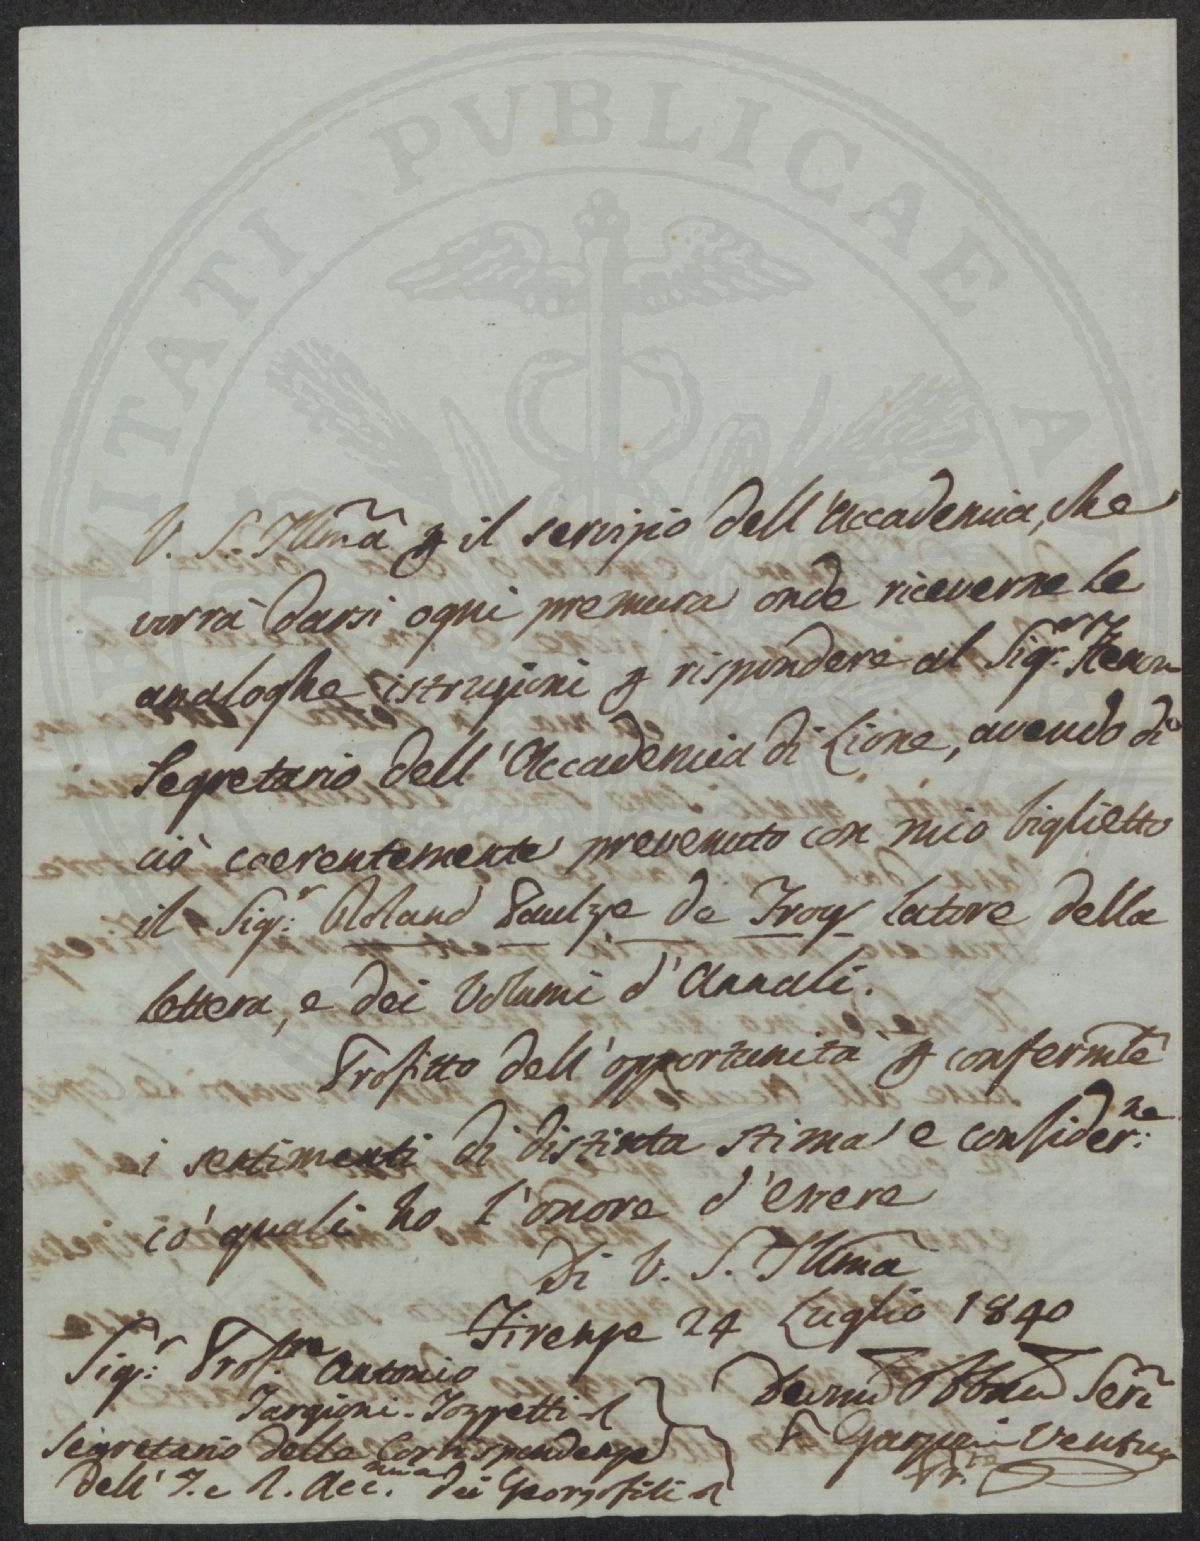 PROSPERITATI PUBLICAE AUGENDAE
V. S. Illma p il servizio dell'Accademia, che
vorrà darsi ogni premura onde riceverne le
analoghe istruzioni p rispondere al Sigr.
Segretario dell'Accademia di Lione, avendo di
ciò coerentemente prevenuto con mio biglietto
il Sigr: Roland Paulze de Ivoy latore della
lettera, e dei Volumi d'Annali.
Profitto dell'opportunità p confermle
i sentimenti di distinta stima e consider:ne
co' quali ho l'onore d'essere
Di V. S. Illma
Firenze 24 Luglio 1840
Sigr: Prof.re Antonio
Targioni-Tozzetti
Segretario delle Corrispondenze
dell' I. e R. Acc.mia dei Georgofili
Devmo Obbmo Serv
P Garzoni Venturi